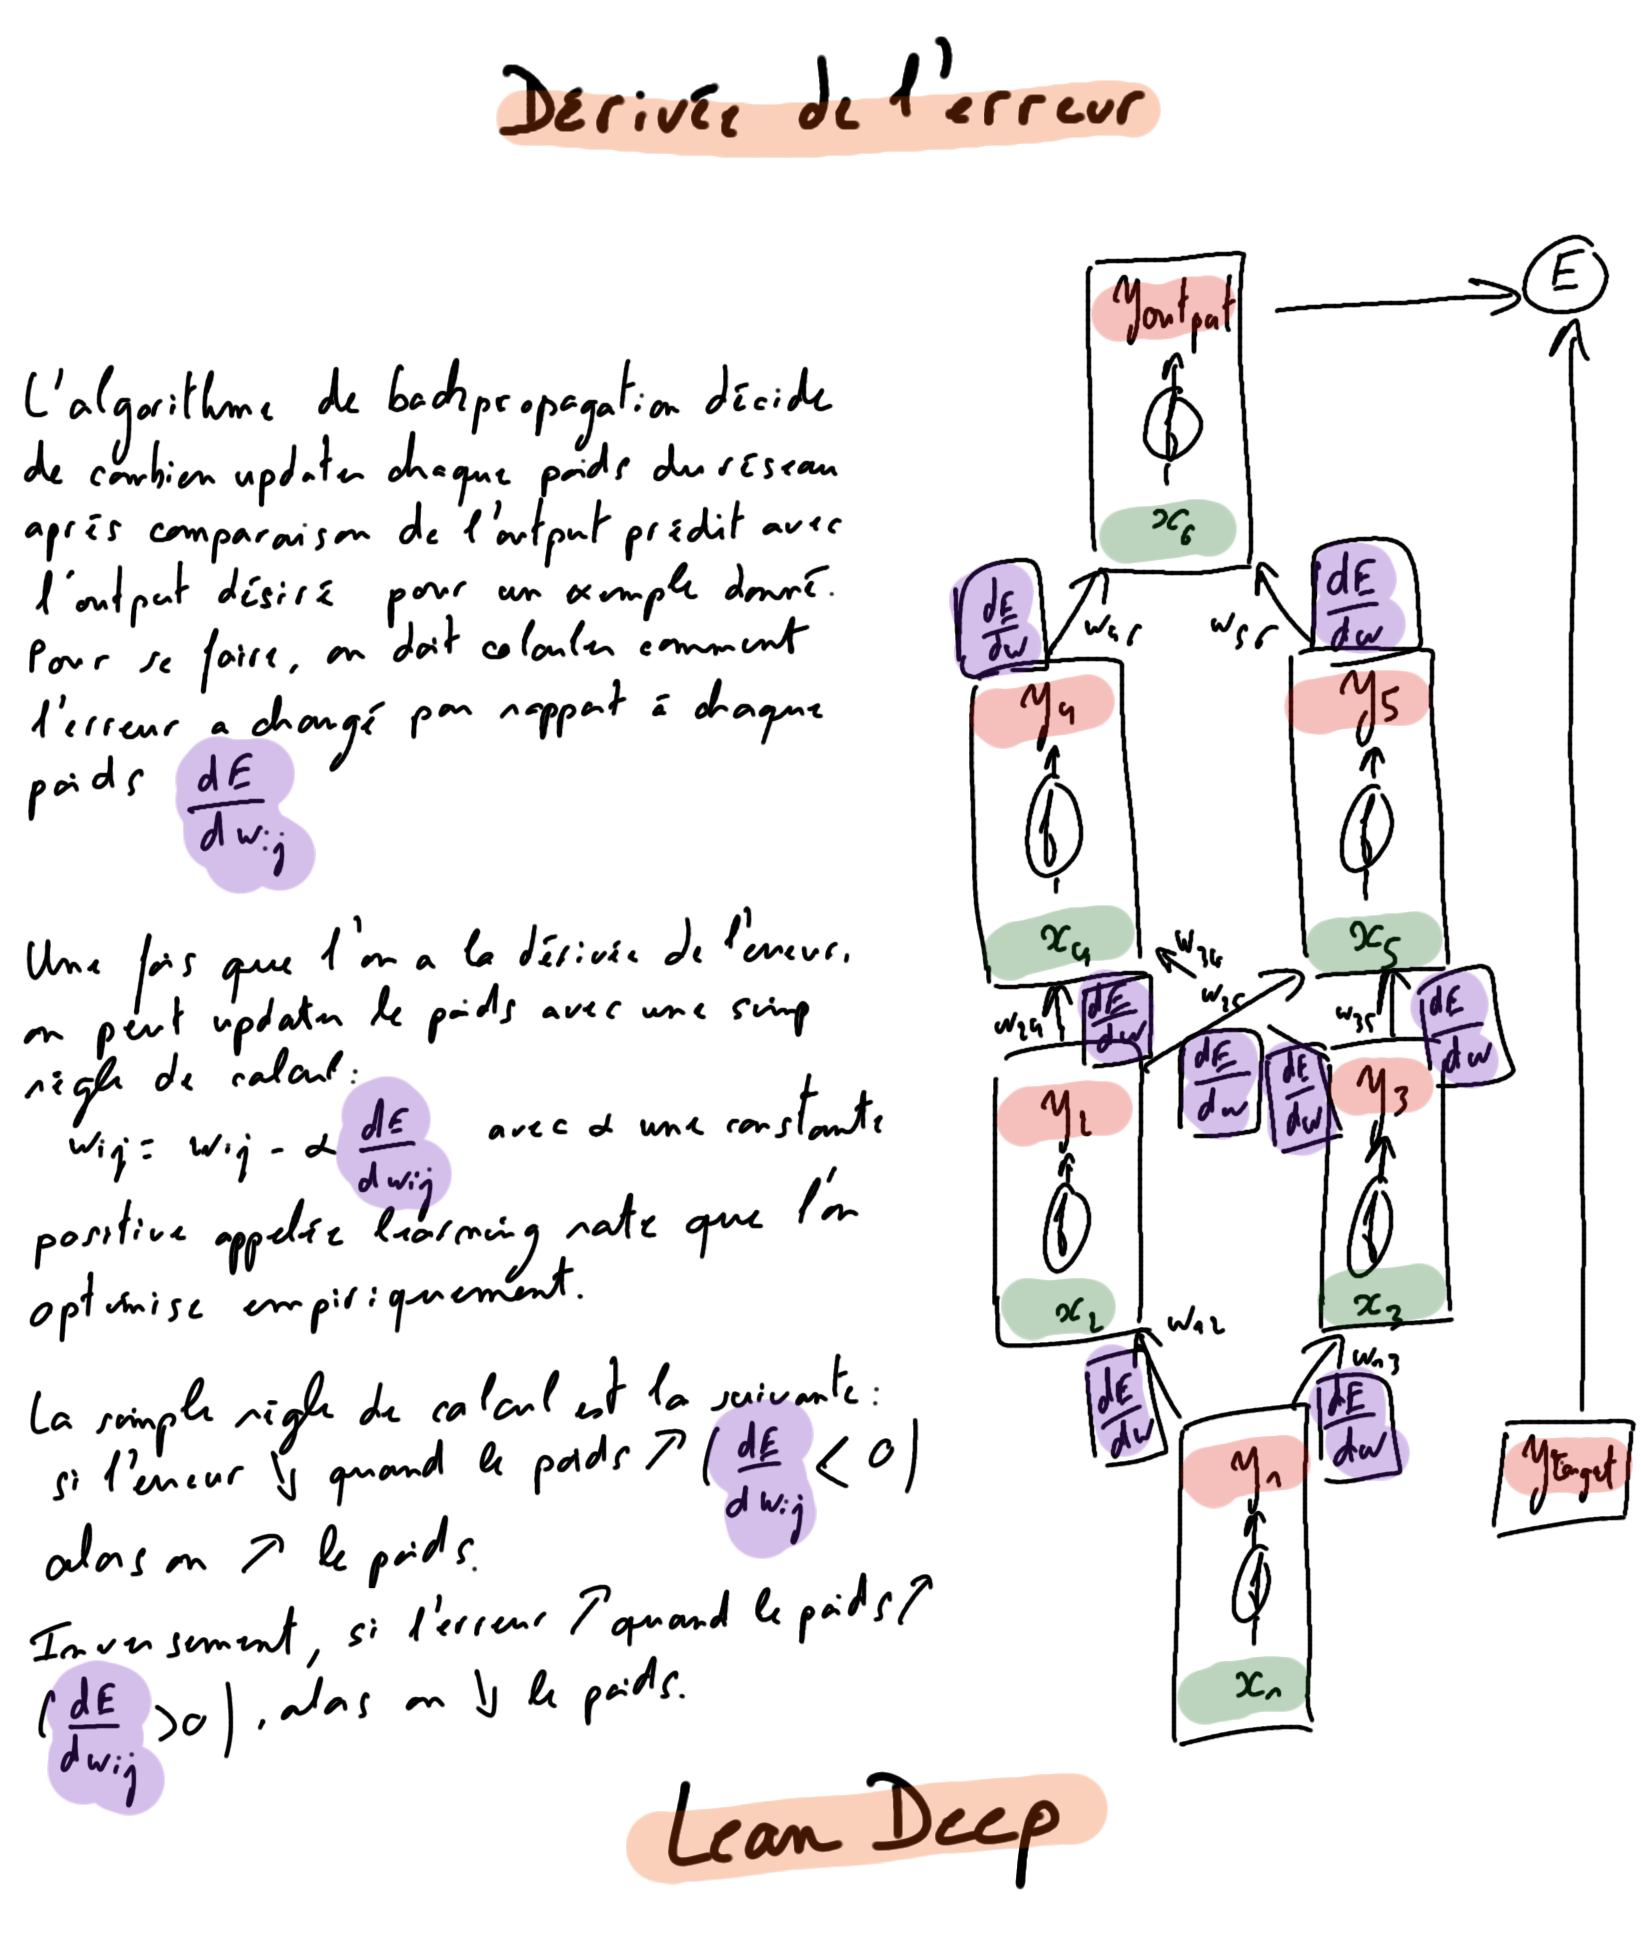 Dérivée de l'erreur
L'algorithme de backpropagation décide
de combien updater chaque poids du réseau
après comparaison de l'output prédit avec
l'output désiré pour un exemple donné.
Pour se faire, on doit calculer comment
l'erreur a changé par rapport à chaque
poids dE/dwij
Une fois que l'on a la dérivée de l'erreur,
on peut updater le poids avec une simp
règle de calcul:
wij = wij - α dE/dwij avec α une constante
positive appelée learning rate que l'on
optimise empiriquement.
La simple règle de calcul est la suivante:
si l'erreur ↘ quand le poids ↗ (dE/dwij < 0)
alors on ↗ le poids.
Inversement, si l'erreur ↗ quand le poids ↗
(dE/dwij >0), alors on ↘ le poids.
E
youtput
x6
dE/dw
w46
w56
dE/dw
y4
y5
x4
x5
w34
w25
w24
dE/dw
w35
dE/dw
dE/dw
dE/dw
y2
y3
x2
x3
w12
w13
dE/dw
dE/dw
y1
ytarget
x1
Lean Deep